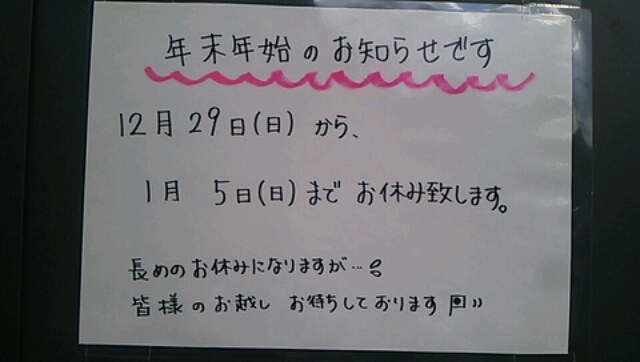 年末年始のお知らせです
12月29日(日)から、
1月 5日(日)まで お休み致します。
長めのお休みになりますが…
皆様のお越し お待ちしております